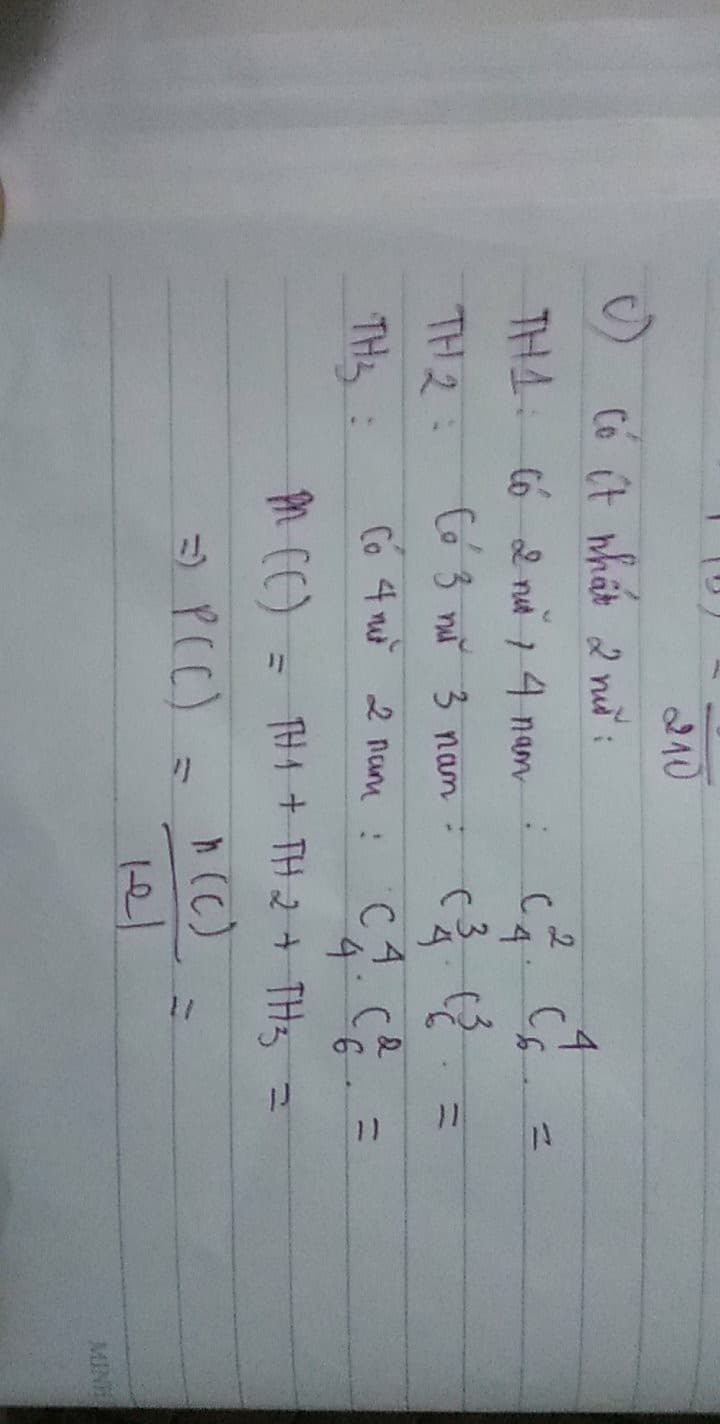 = 210
c) Có ít nhất 2 nữ:
TH1: Có 2 nữ, 4 nam: C²₄. C⁴₆. =
TH2: Có 3 nữ 3 nam: C³₄. C³₆. =
TH3: Có 4 nữ 2 nam: C⁴₄. C²₆. =
n(C) = TH1 + TH2 + TH3 =
=> P(C) = n(C) / |Ω| =
MINH